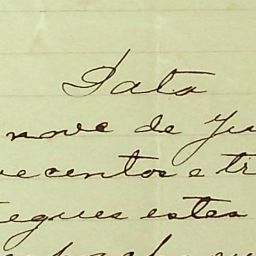 Data
nove de Ju
vecentos e tr
egues estes